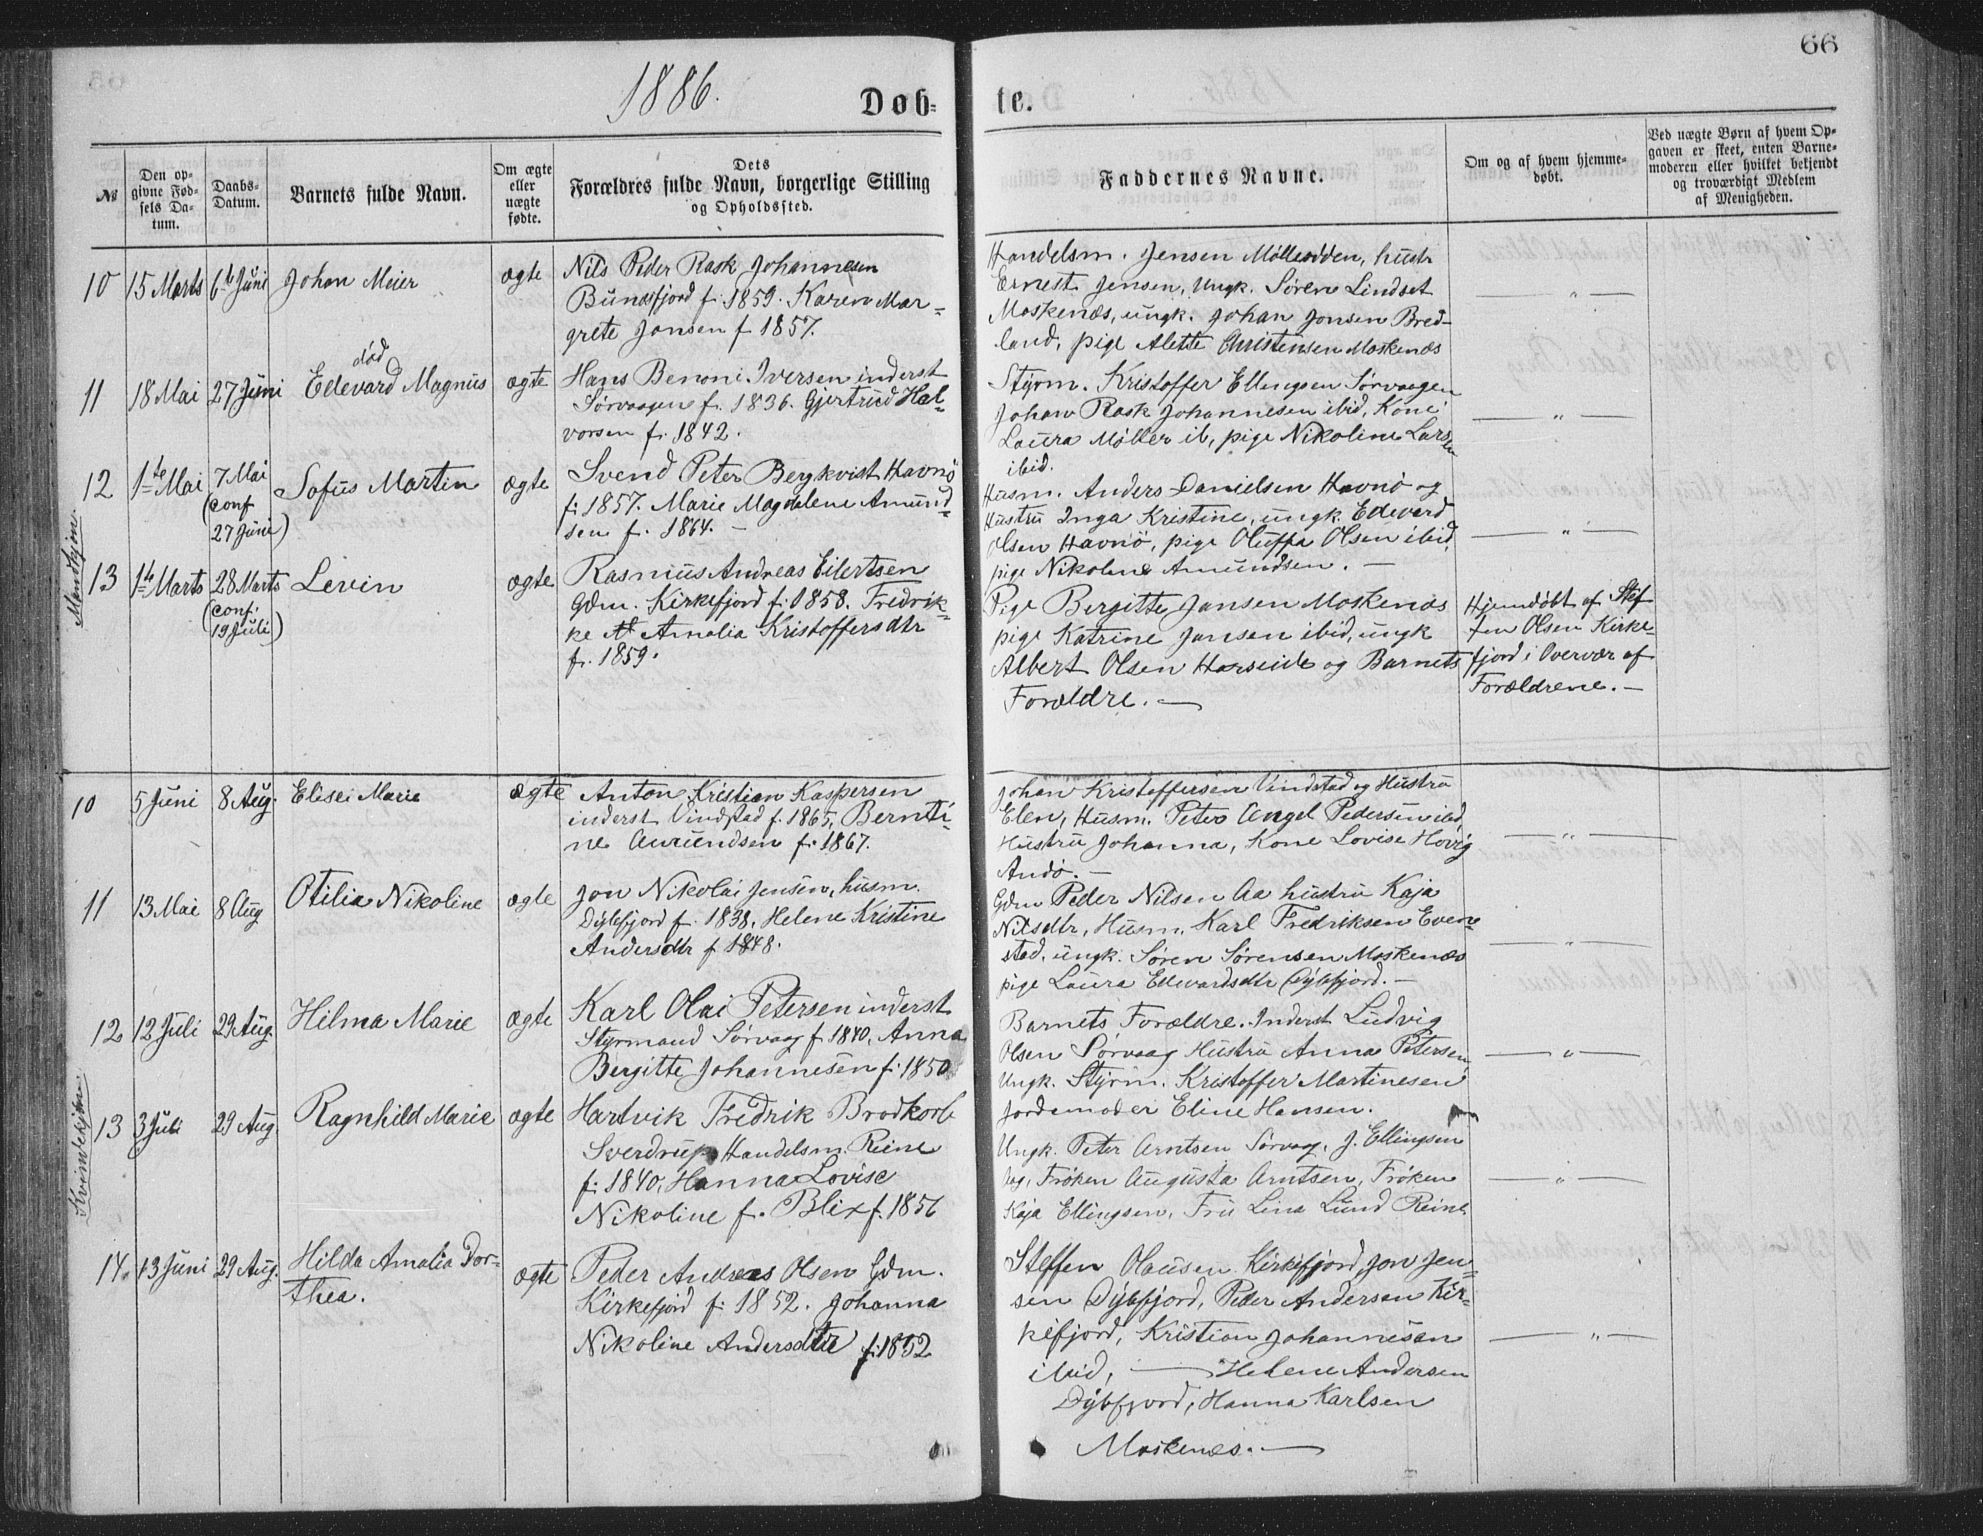 66
1886.
Døb-
te.
№
Den op-
givne Fød-
sels Da-
tum.
Daabs-
Datum.
Barnets fulde Navn.
Om ægte
eller
uægte
fødte.
Dets
Forældres fulde Navn, borgerlige Stilling
og Opholdssted.
Faddernes Navne.
Om og af hvem hjemme-
døbt.
Ved uægte Børn af hvem Op-
gaven er skeet, enten Barne-
moderen eller hvilket bekjendt
og troværdigt Medlem
af Menigheden.
Mandkjøn.
10
15 Marts
6te Juni
Johan Meier
ægte
Nils Peder Rask Johannesen
Bunæsfjord f. 1859. Karen Mar-
grete Jansen f. 1857.
Handelsm. Jensen Mølleodden, hustr
Ernest Jensen, Ungk. Søren Lindset
Moskenæs, ungk. Johan Jonsen Bred-
land, pige Alette Christensen Moskenæs
— " —
11
18 Mai
27 Juni
død
Edevard Magnus
ægte
Hans Benoni Iversen inderst
Sørvaagen f. 1836. Gjertrud Hal-
vorsen f. 1842.
Styrm. Kristoffer Ellingsen Sørvaagen
Johan Rask Johannesen ibid, Kone
Laura Møller ib, pige Nikoline Larsen
ibid.
— " —
12
1te Mai
7 Mai
(conf
27 Juni)
Sofus Martin
ægte
Svend Peter Bergkvist Havnø
f. 1857. Marie Magdalene Amund-
sen f. 1864. —
Husm. Anders Danielsen Havnø og
Hustru Inga Kristine, ungk. Edevard
Olsen Havnø, pige Oluffa Olsen ibid,
pige Nikoline Amundsen. —
— " —
13
1te Marts
28 Marts
(conf.
19 Juli)
Levin
ægte
Rasmus Andreas Eilertsen
Gdm. Kirkefjord f. 1858. Fredrik-
ke Amalia Kristoffersdtr
f. 1859.
Pige Bergitte Jansen Moskenæs
pige Katrine Jansen ibid, ungk
Albert Olsen Horseide og Barnets
Forældre. —
Hjemdøbt af Stef
fen Olsen Kirke-
fjord i Overvær af
Forældrene. —
Kvindekjøn.
10
5 Juni
8 Aug.
Elisei Marie
ægte
Anton Kristian Kaspersen
inderst Vindstad f. 1865, Bernti-
ne Amundsen f. 1867.
Johan Kristoffersen Vindstad og Hustru
Elen, Husm. Peter Angel Pedersen ibid,
Hustru Johanna, Kone Lovise Hovig
Andø. —
— " —
11
13 Mai
8 Aug
Otilia Nikoline
ægte
Jon Nikolai Jensen, husm.
Dybfjord f. 1838, Helene Kristine
Andersdtr f. 1848.
Gdm Peder Nilsen Aa hustru Kaja
Nilsdtr, Husm. Karl Fredriksen Even-
stad, ungk. Søren Sørensen Moskenæs
pige Laura Edevardsdtr Dybfjord. —
— " —
12
12 Juli
29 Aug.
Hilma Marie
ægte
Karl Olai Petersen inderst
Styrmand Sørvaag f. 1840, Anna
Bergitte Johannesen f. 1850
Barnets Forældre. Inderst Ludvig
Olsen Sørvaag Hustru Anna Petersen,
Ungk. Styrm. Kristoffer Martinesen
Jordemoder Eline Hansen.
— " —
13
3 Juli
29 Aug.
Ragnhild Marie
ægte
Hartvik Fredrik Brodkorb
Sverdrup Handelsm. Reine
f. 1840, Hanna Lovise
Nikoline f. Blix f. 1856
Ungk. Peter Arntsen Sørvag, J. Ellingsen
Frøken Augusta Arntsen, Frøken
Kaja Ellingsen, Fru Lina Lund Reine
— " —
14.
13 Juni
29 Aug.
Hilda Amalia Dor-
thea.
ægte
Peder Andreas Olsen Gdm.
Kirkefjord f. 1852. Johanna
Nikoline Andersdtr f. 1852
Steffen Olausen Kirkefjord, Jon Jen-
sen Dybfjord, Peder Andersen Kir-
kefjord, Kristian Johannesen
ibid, — Helene Andersen
Dybfjord, Hanna Karlsen
Moskenæs. —
— " —